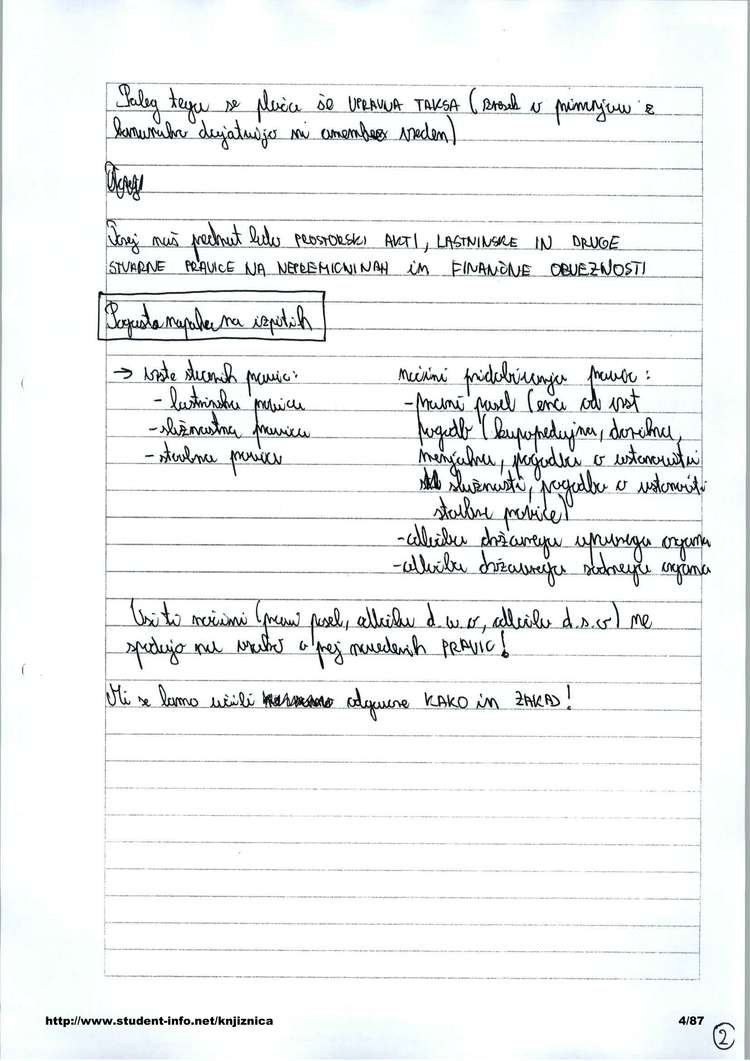 Poleg tega se plača še UPRAVNA TAKSA (znesek v primerjavi z
komunalno dejatvijo ni omembe vreden)
Torej naš predmet bodo PROSTORSKI AKTI, LASTNINSKE IN DRUGE
STVARNE PRAVICE NA NEPREMIČNINAH in FINANČNE OBVEZNOSTI
Pogosta napaka na izpitih
→ vrste stvarnih pravic:
- lastninska pravica
- služnostna pravica
- stavbna pravica
načini pridobivanja pravic:
- pravni posel (ena od vrst
pogodb (kupoprodajna, darilna,
menjalna, pogodba o ustanovitvi
služnosti, pogodba o ustanovitvi
stavbne pravice)
- odločba državnega upravnega organa
- odločba državnega sodnega organa
Vsi ti načini (pravni posel, odločba d.u.o, odločba d.s.o) ne
spadajo na vrsto o prej navedenih PRAVIC!
Mi se bomo učili odgovore KAKO in ZAKAJ!
http://www.student-info.net/knjiznica
4/87
2